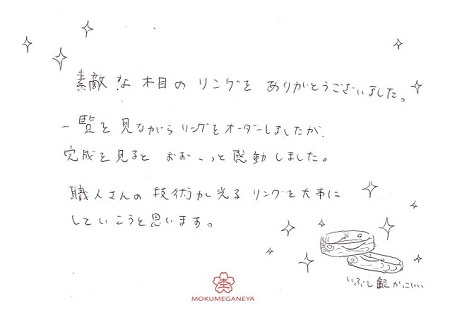 素敵な木目のリングをありがとうございました。
一覧を見ながらリングをオーダーしましたが、
完成を見ると おお…っと感動しました。
職人さんの技術が光るリングを大事に
していこうと思います。
いぶし銀がかっこいい
MOKUMEGANEYA